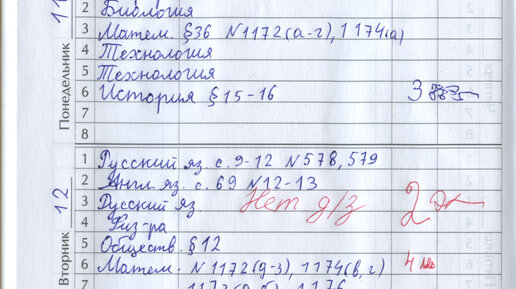 11
Понедельник
2 Биология
3 Матем. §36 N1172(а-г), 1174(а)
4 Технология
5 Технология
6 История §15-16 3
7
8
12
Вторник
1 Русский яз. с. 9-12 N578, 579
2 Англ. яз. с. 69 N12-13
3 Русский яз Нет д/з 2
4 Физ-ра
5 Обществ. §12
6 Матем. N1172(д-з), 1174(в, г) 4